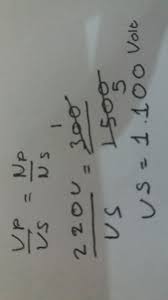 VP/VS = NP/NS
220V/VS = 300/1500 1 5
VS = 1.100 Volt